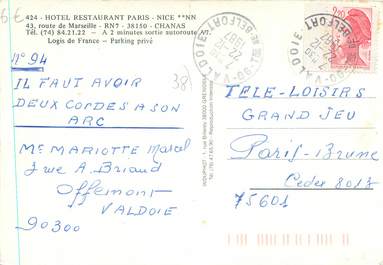 6€
424 - HOTEL RESTAURANT PARIS - NICE **NN
43, route de Marseille - RN7 - 38150 - CHANAS
Tél. (74) 84.21.22 - A 2 minutes sortie autoroute
Logis de France - Parking privé
N° 94
38)
IL FAUT AVOIR
DEUX CORDES A SON
ARC
Mr MARIOTTE Marcel
3 rue A. Briand
Offlemont
VALDOIE
90300
VALDOIE
90
BELFORT
2,20
TELE-LOISIRS
GRAND JEU
Paris-Brune
Cedex 8013
75601